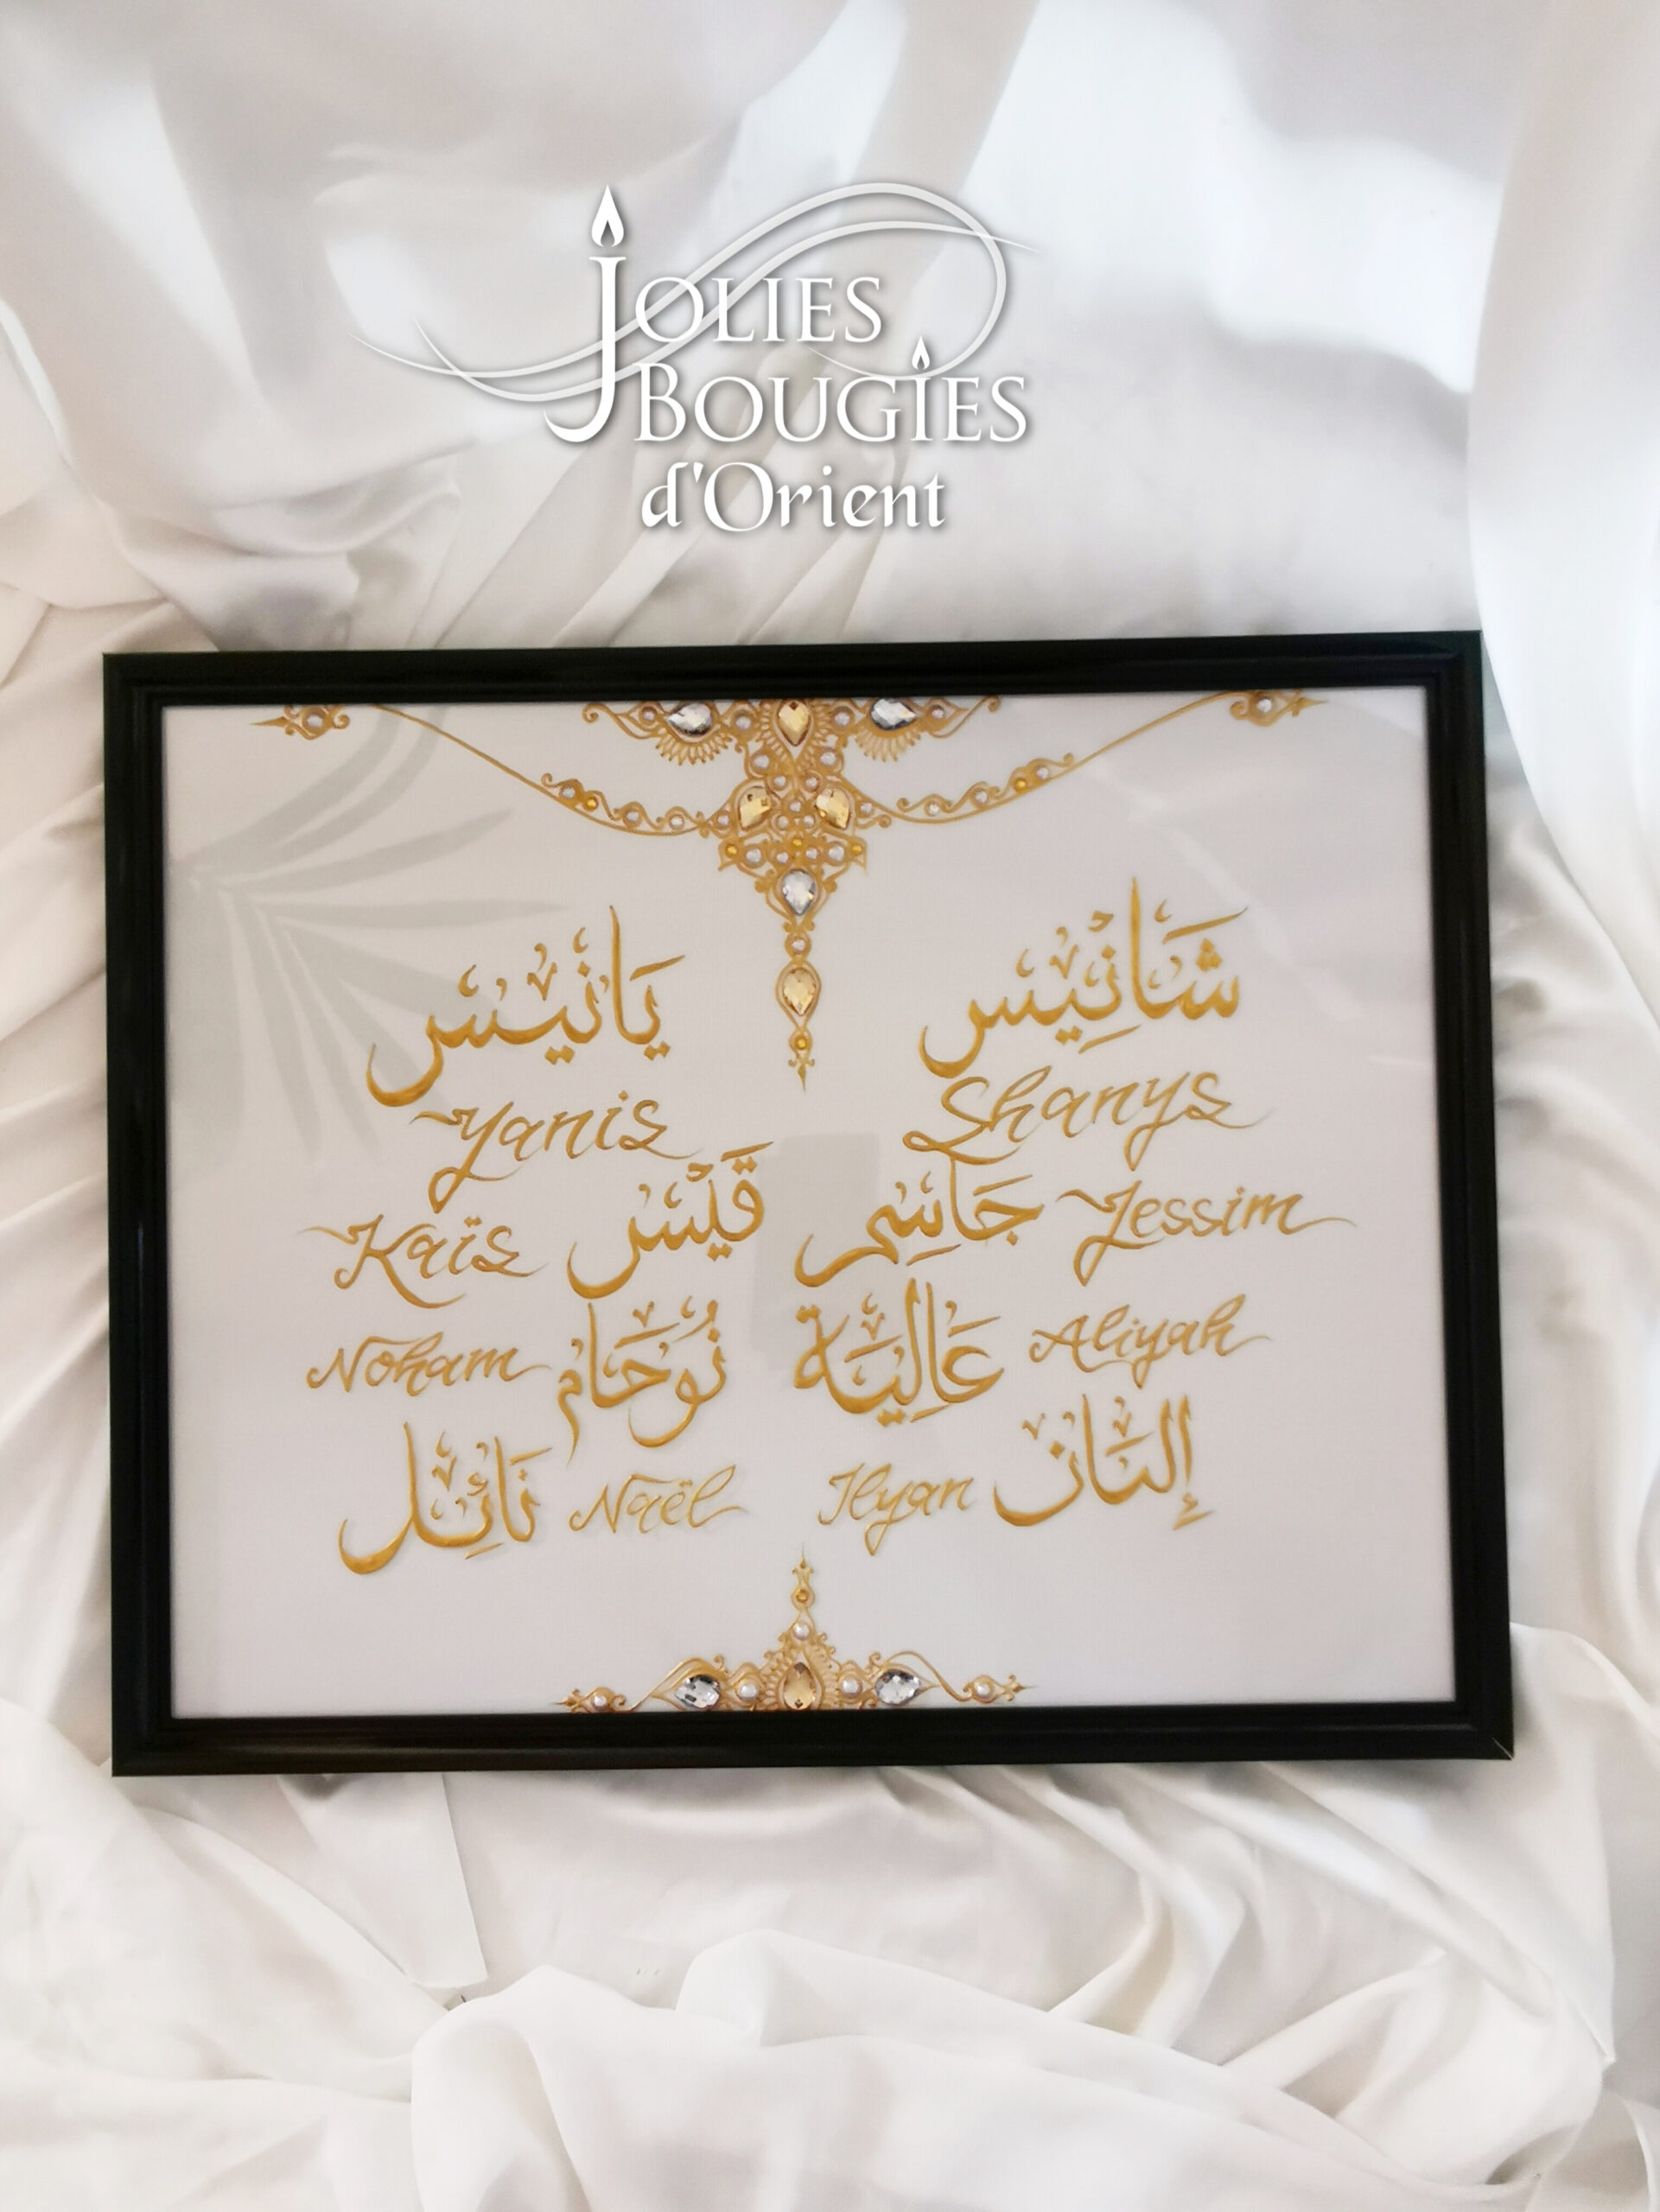 Jolies
Bougies
d'Orient
يَانِيسْ شَانِيسْ
Yanis Shanys
Kaïs قَيْسْ جَاسِم Jessim
Noham نُوحَام عَالِيَة Aliyah
نَائِل Naël Ilyan إليَان